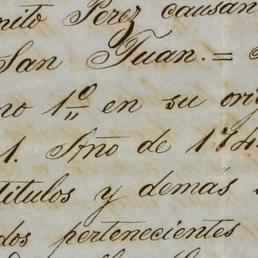 nito Perez causan
San Juan. =
no 1º en su ori
1. Año de 174
titulos y demás
dos pertenecientes